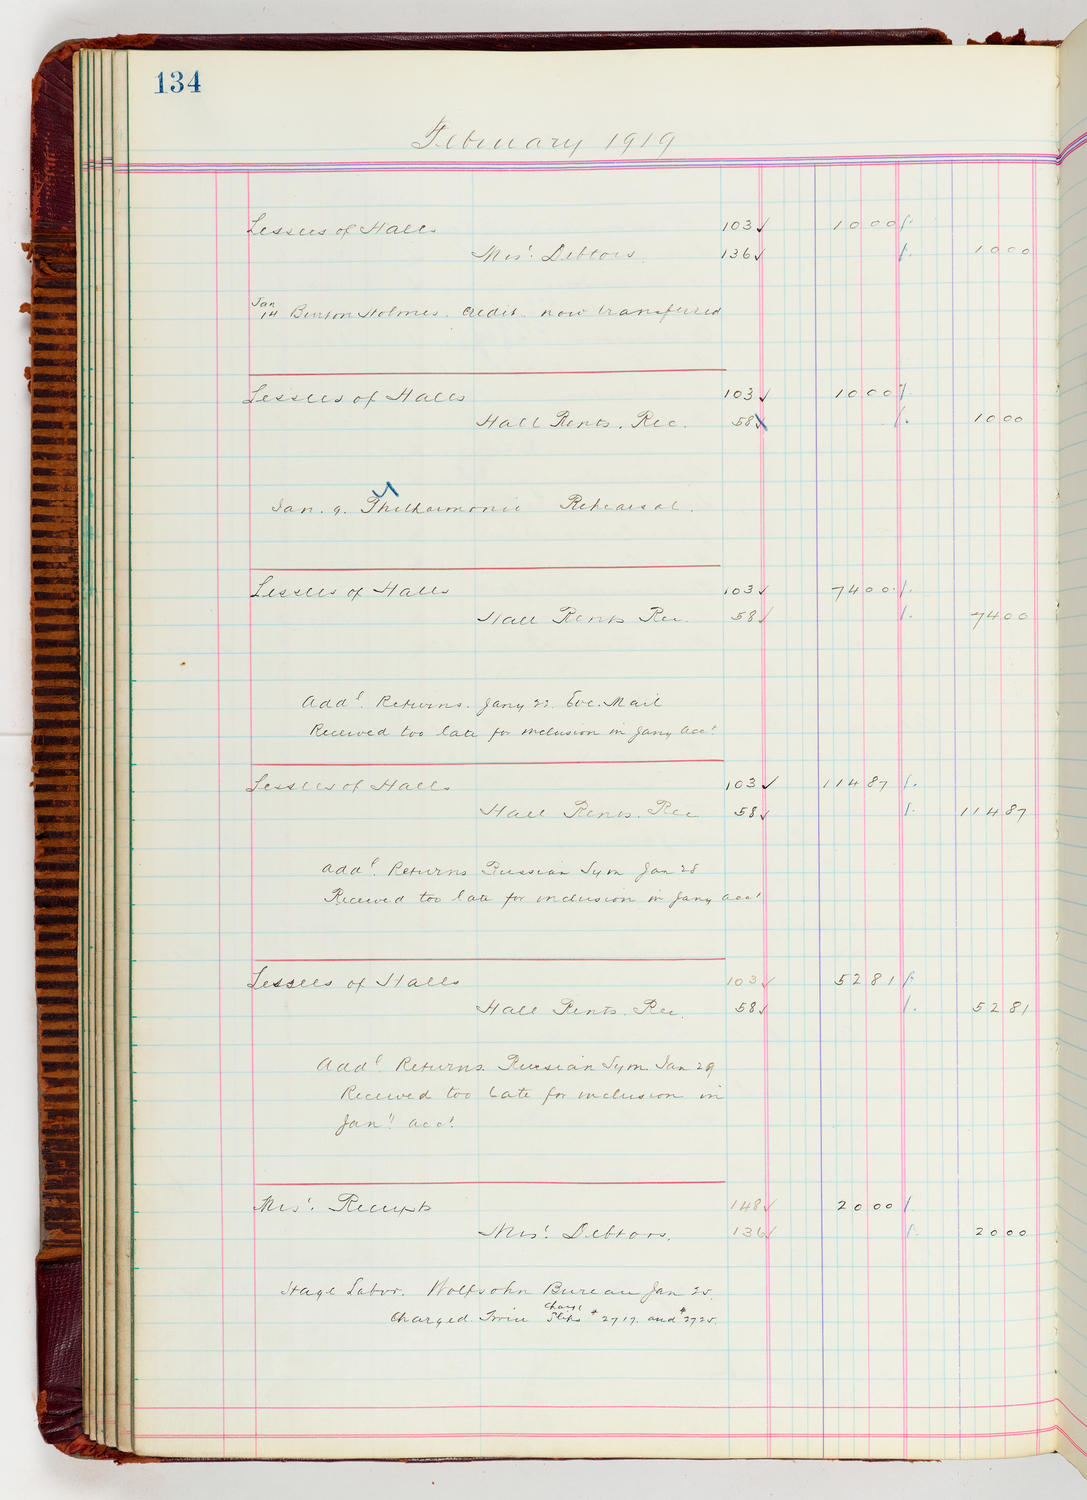 134
February 1919
Lessees of Halls 103 ✓ 1000 /.
Mis'. Debtors 136 ✓ /. 1000
Jan 14 Burton Holmes. Credit. now transferred
Lessees of Halls 103 ✓ 1000 /.
Hall Rents. Rec. 58 ✓ /. 1000
Jan. 9. Philharmonic Rehearsal.
Lessees of Halls 103 ✓ 7400 /.
Hall Rents Rec. 58 ✓ /. 7400
Add'l. Returns. Jany 22. Eve. Mail
Received too late for inclusion in Jany acc't
Lessees of Halls 103 ✓ 11487 /.
Hall Rents. Rec 58 ✓ /. 11487
Add'l. Returns Russian Sym Jan 28
Received too late for inclusion in Jany acc't
Lessees of Halls 103 ✓ 5281 /.
Hall Rents. Rec. 58 ✓ /. 5281
Add'l Returns. Russian Sym Jan 29
Received too late for inclusion in
Jany acc't.
Mis'. Receipts 148 ✓ 2000 /.
Mis'. Debtors. 136 ✓ /. 2000
Stage Labor. Wolfsohn Bureau Jan 25.
Charged Twice Charge Slips # 2717. and # 2725.